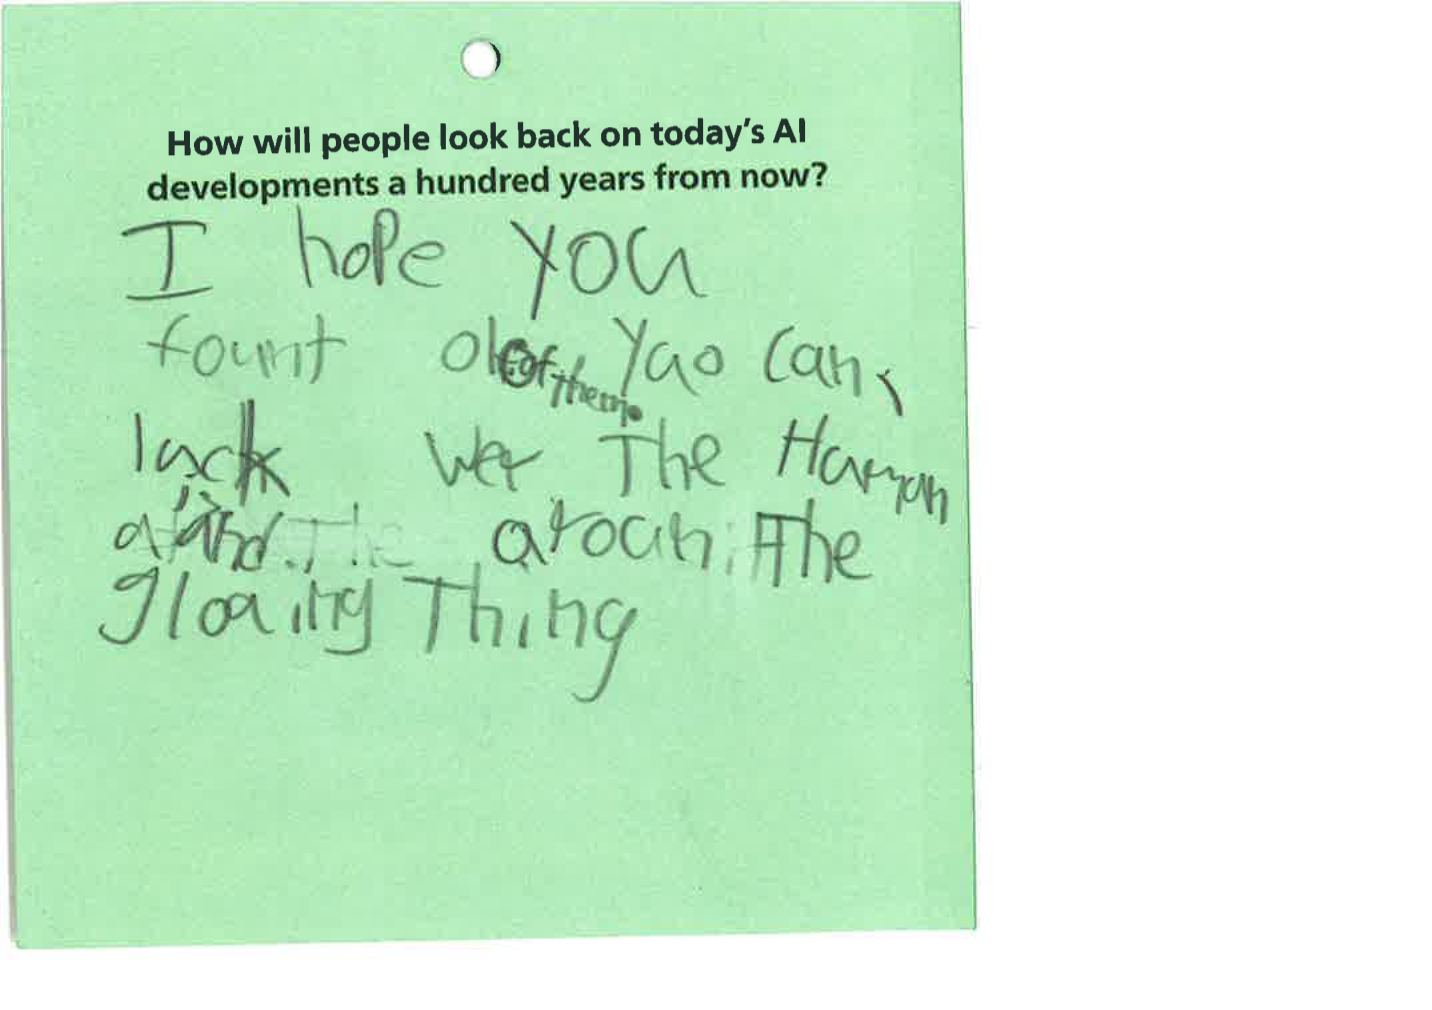 How will people look back on today's AI
developments a hundred years from now?
I hope you
fount of them. Yao Can
lack Wer The Haman
and aroun The
gloaing Thing